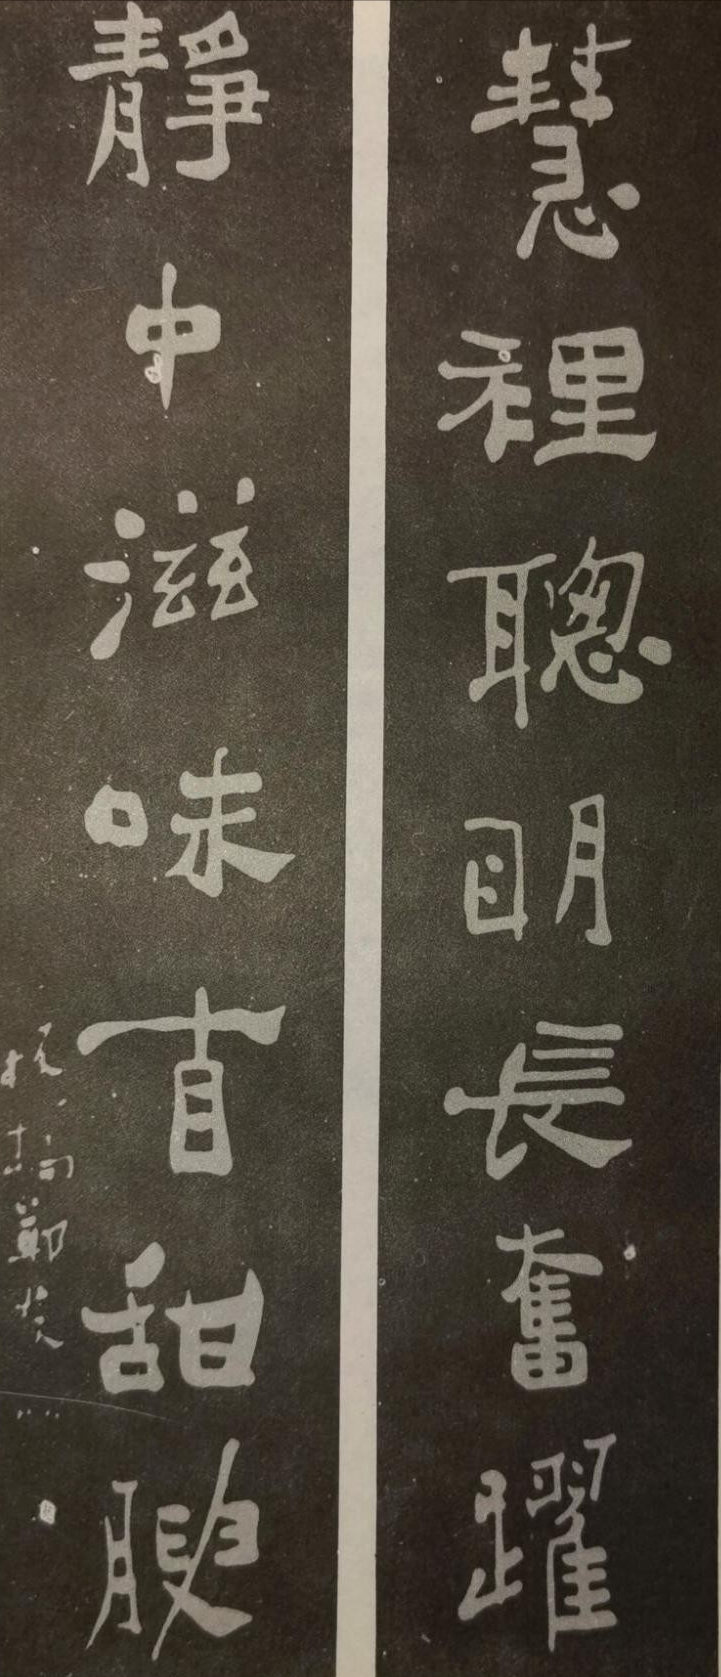 慧裡聰明長奮躍
靜中滋味自甜腴
鄭燮